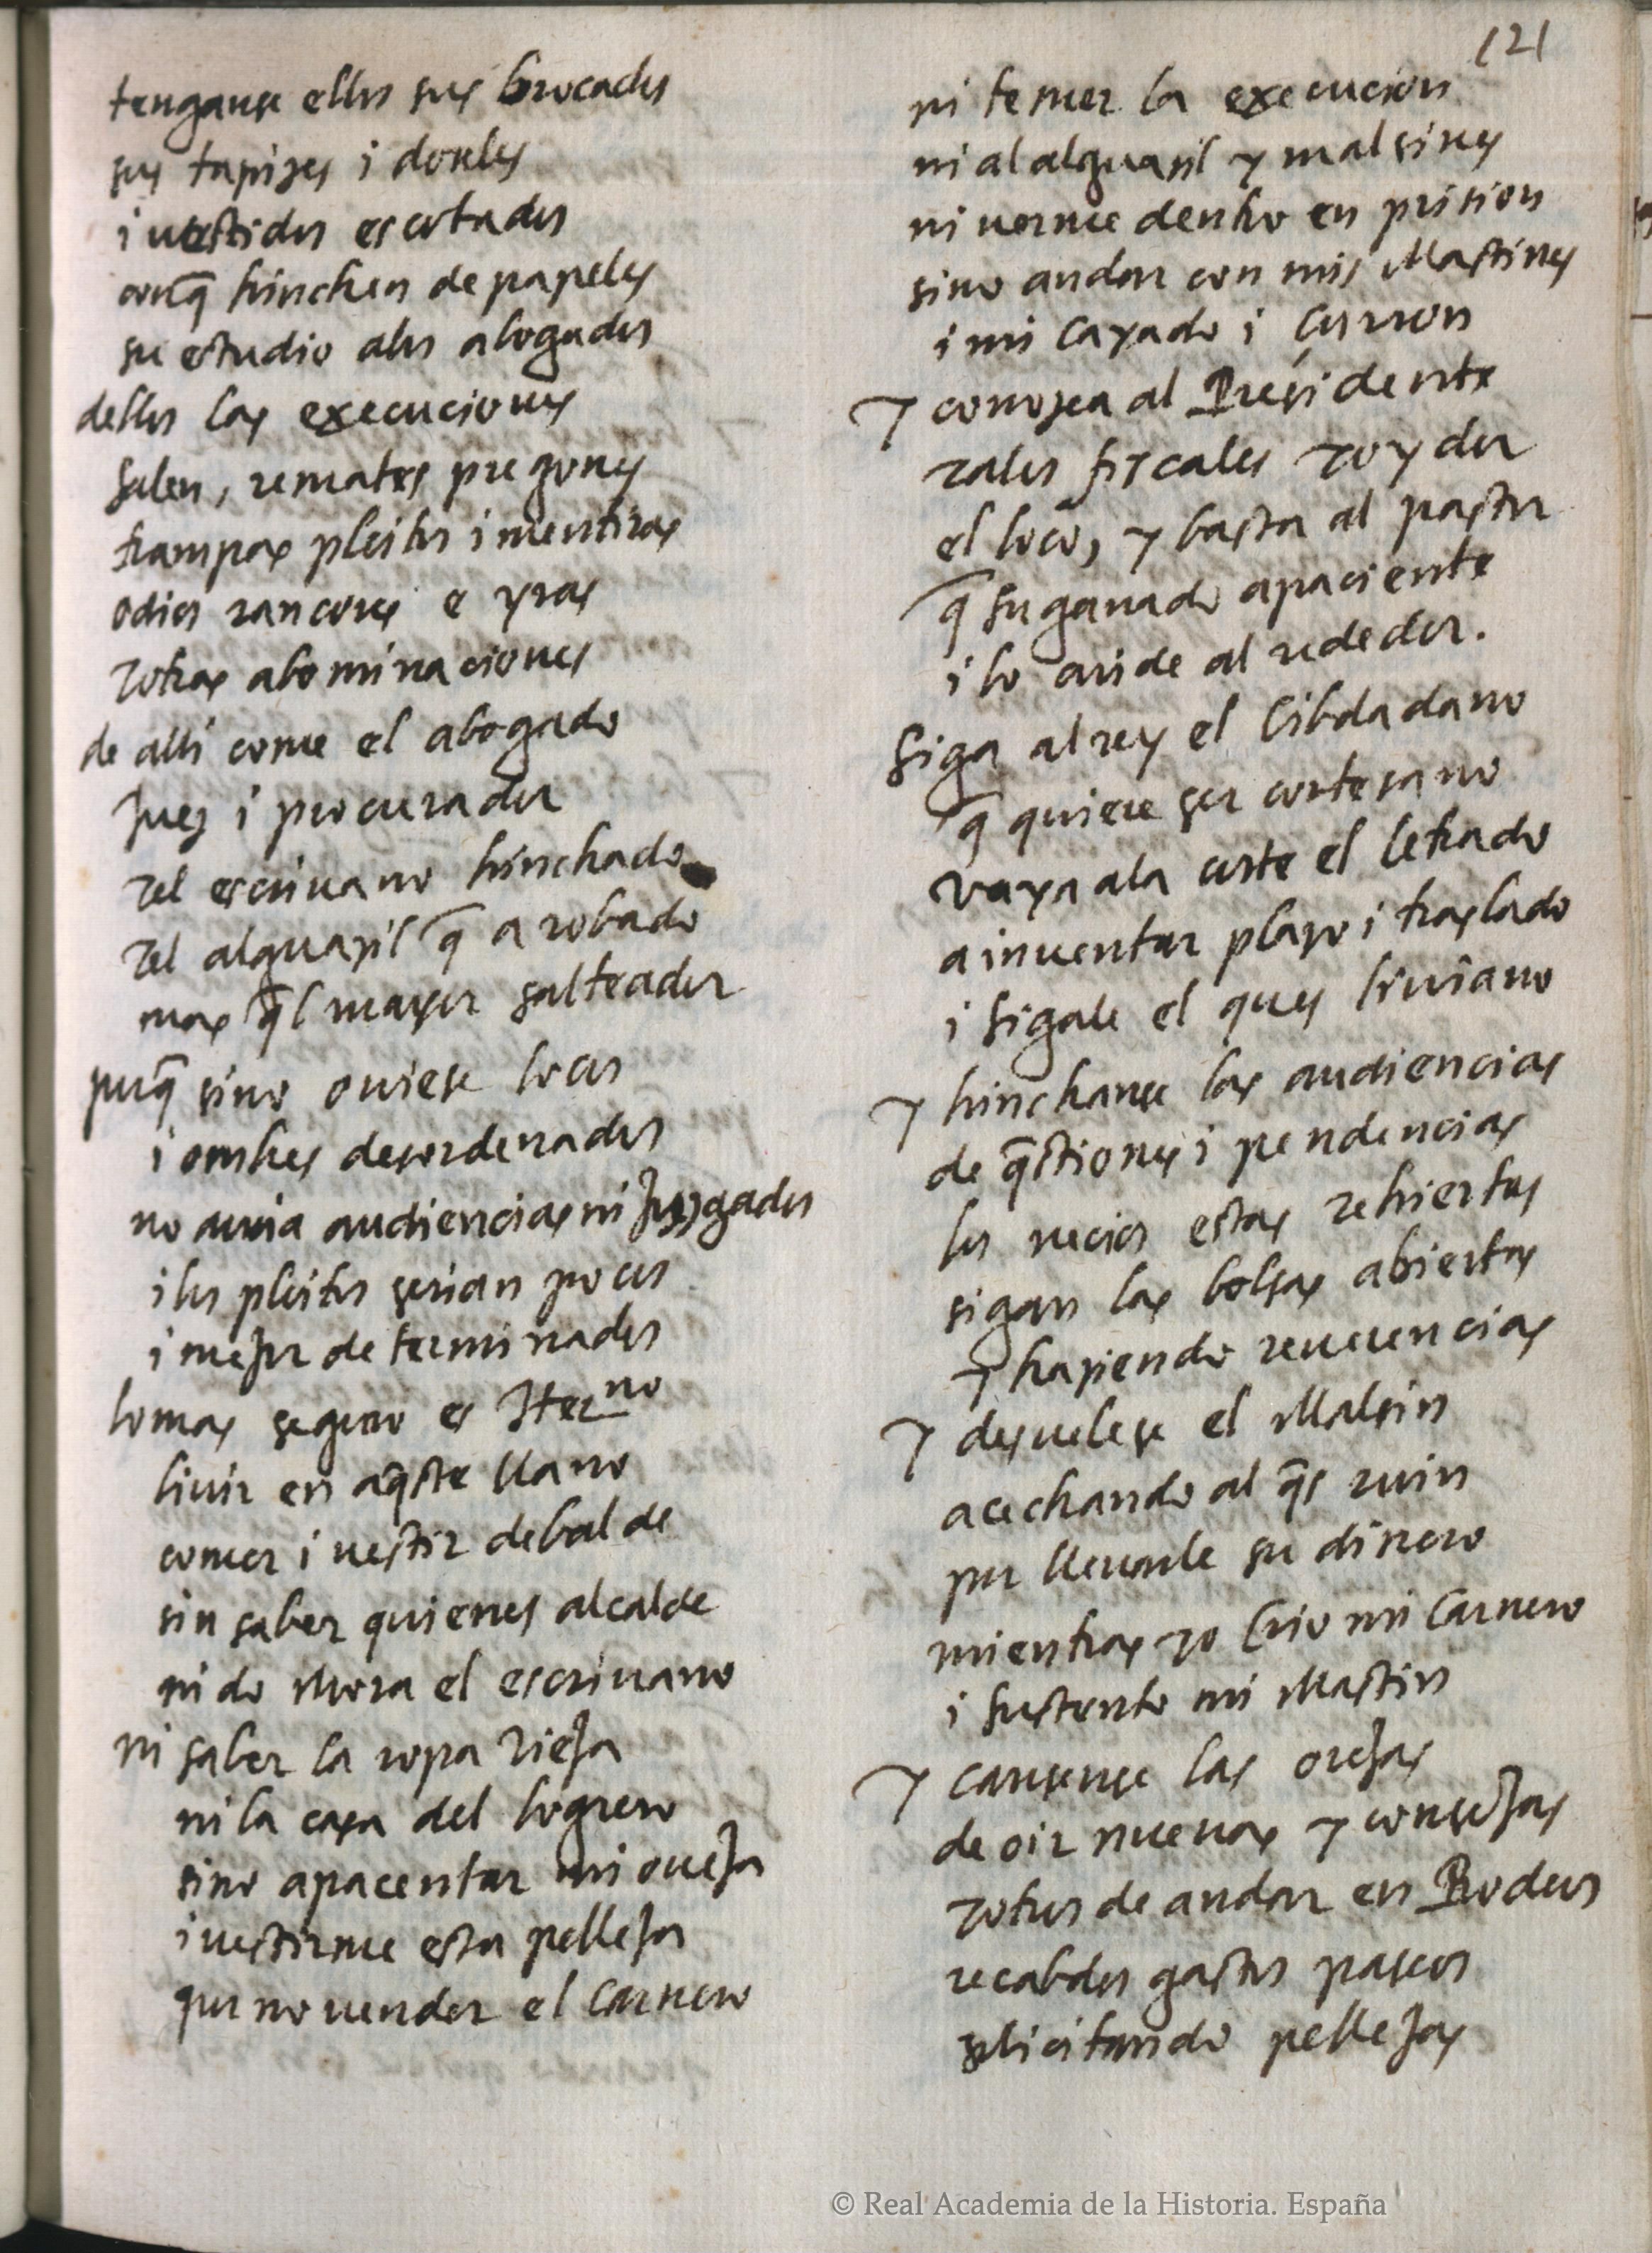 121
tenganse ellos sus brocados
sus tapizes i doseles
i vestidos escotados
conq̃ hinchen de papeles
su estudio alos abogados
dellos las execuciones
salen, remates pregones
trampas pleitos i mentiras
odios rancores e yras
yotras abominaciones
de alli come el abogado
juez i procurador
yel escriuano hinchado
yel alguazil q̃ a robado
mas q̃l mayor salteador
porq̃ sino ouiese locos
i ombres desordenados
no auria audiencias ni Juzgados
i los pleitos serian pocos
i mejor determinados
lo mas seguro es Herno
biuir en aq̃ste llano
comer i vestir debalde
sin saber quienes alcalde
ni do Mora el escriuano
ni saber la ropa vieja
ni la casa del logrero
sino apacentar mi oueja
i uestirme esta pelleja
por no uender el carnero
ni temer la execucion
ni al alguazil y malsines
ni uerme dentro en prision
sino andar con mis Mastines
i mi cayado i çurron
y conozca al Presidente
yalos fiscales yoydor
el loco, y basta al pastor
q̃ su ganado apaciente
i lo cuide al rededor.
Siga al rey el cibdadano
q̃ quiere ser cortesano
vaya ala corte el letrado
a inuentar plazo i traslado
i sigale el ques liuiano
y hinchanse las audiencias
de q̃stiones i pendencias
los necios estas rehiertas
sigan las bolsas abiertas
y haziendo reuerencias
y desuelese el Malsin
acechando al q̃s ruin
por lleuarle su dinero
mientras yo crio mi carnero
i sustento mi Mastin
y cansense las orejas
de oir nueuas y consejas
yotros de andar en Rodeos
recabdos gastos paseos
solicitando pellejas
© Real Academia de la Historia. España